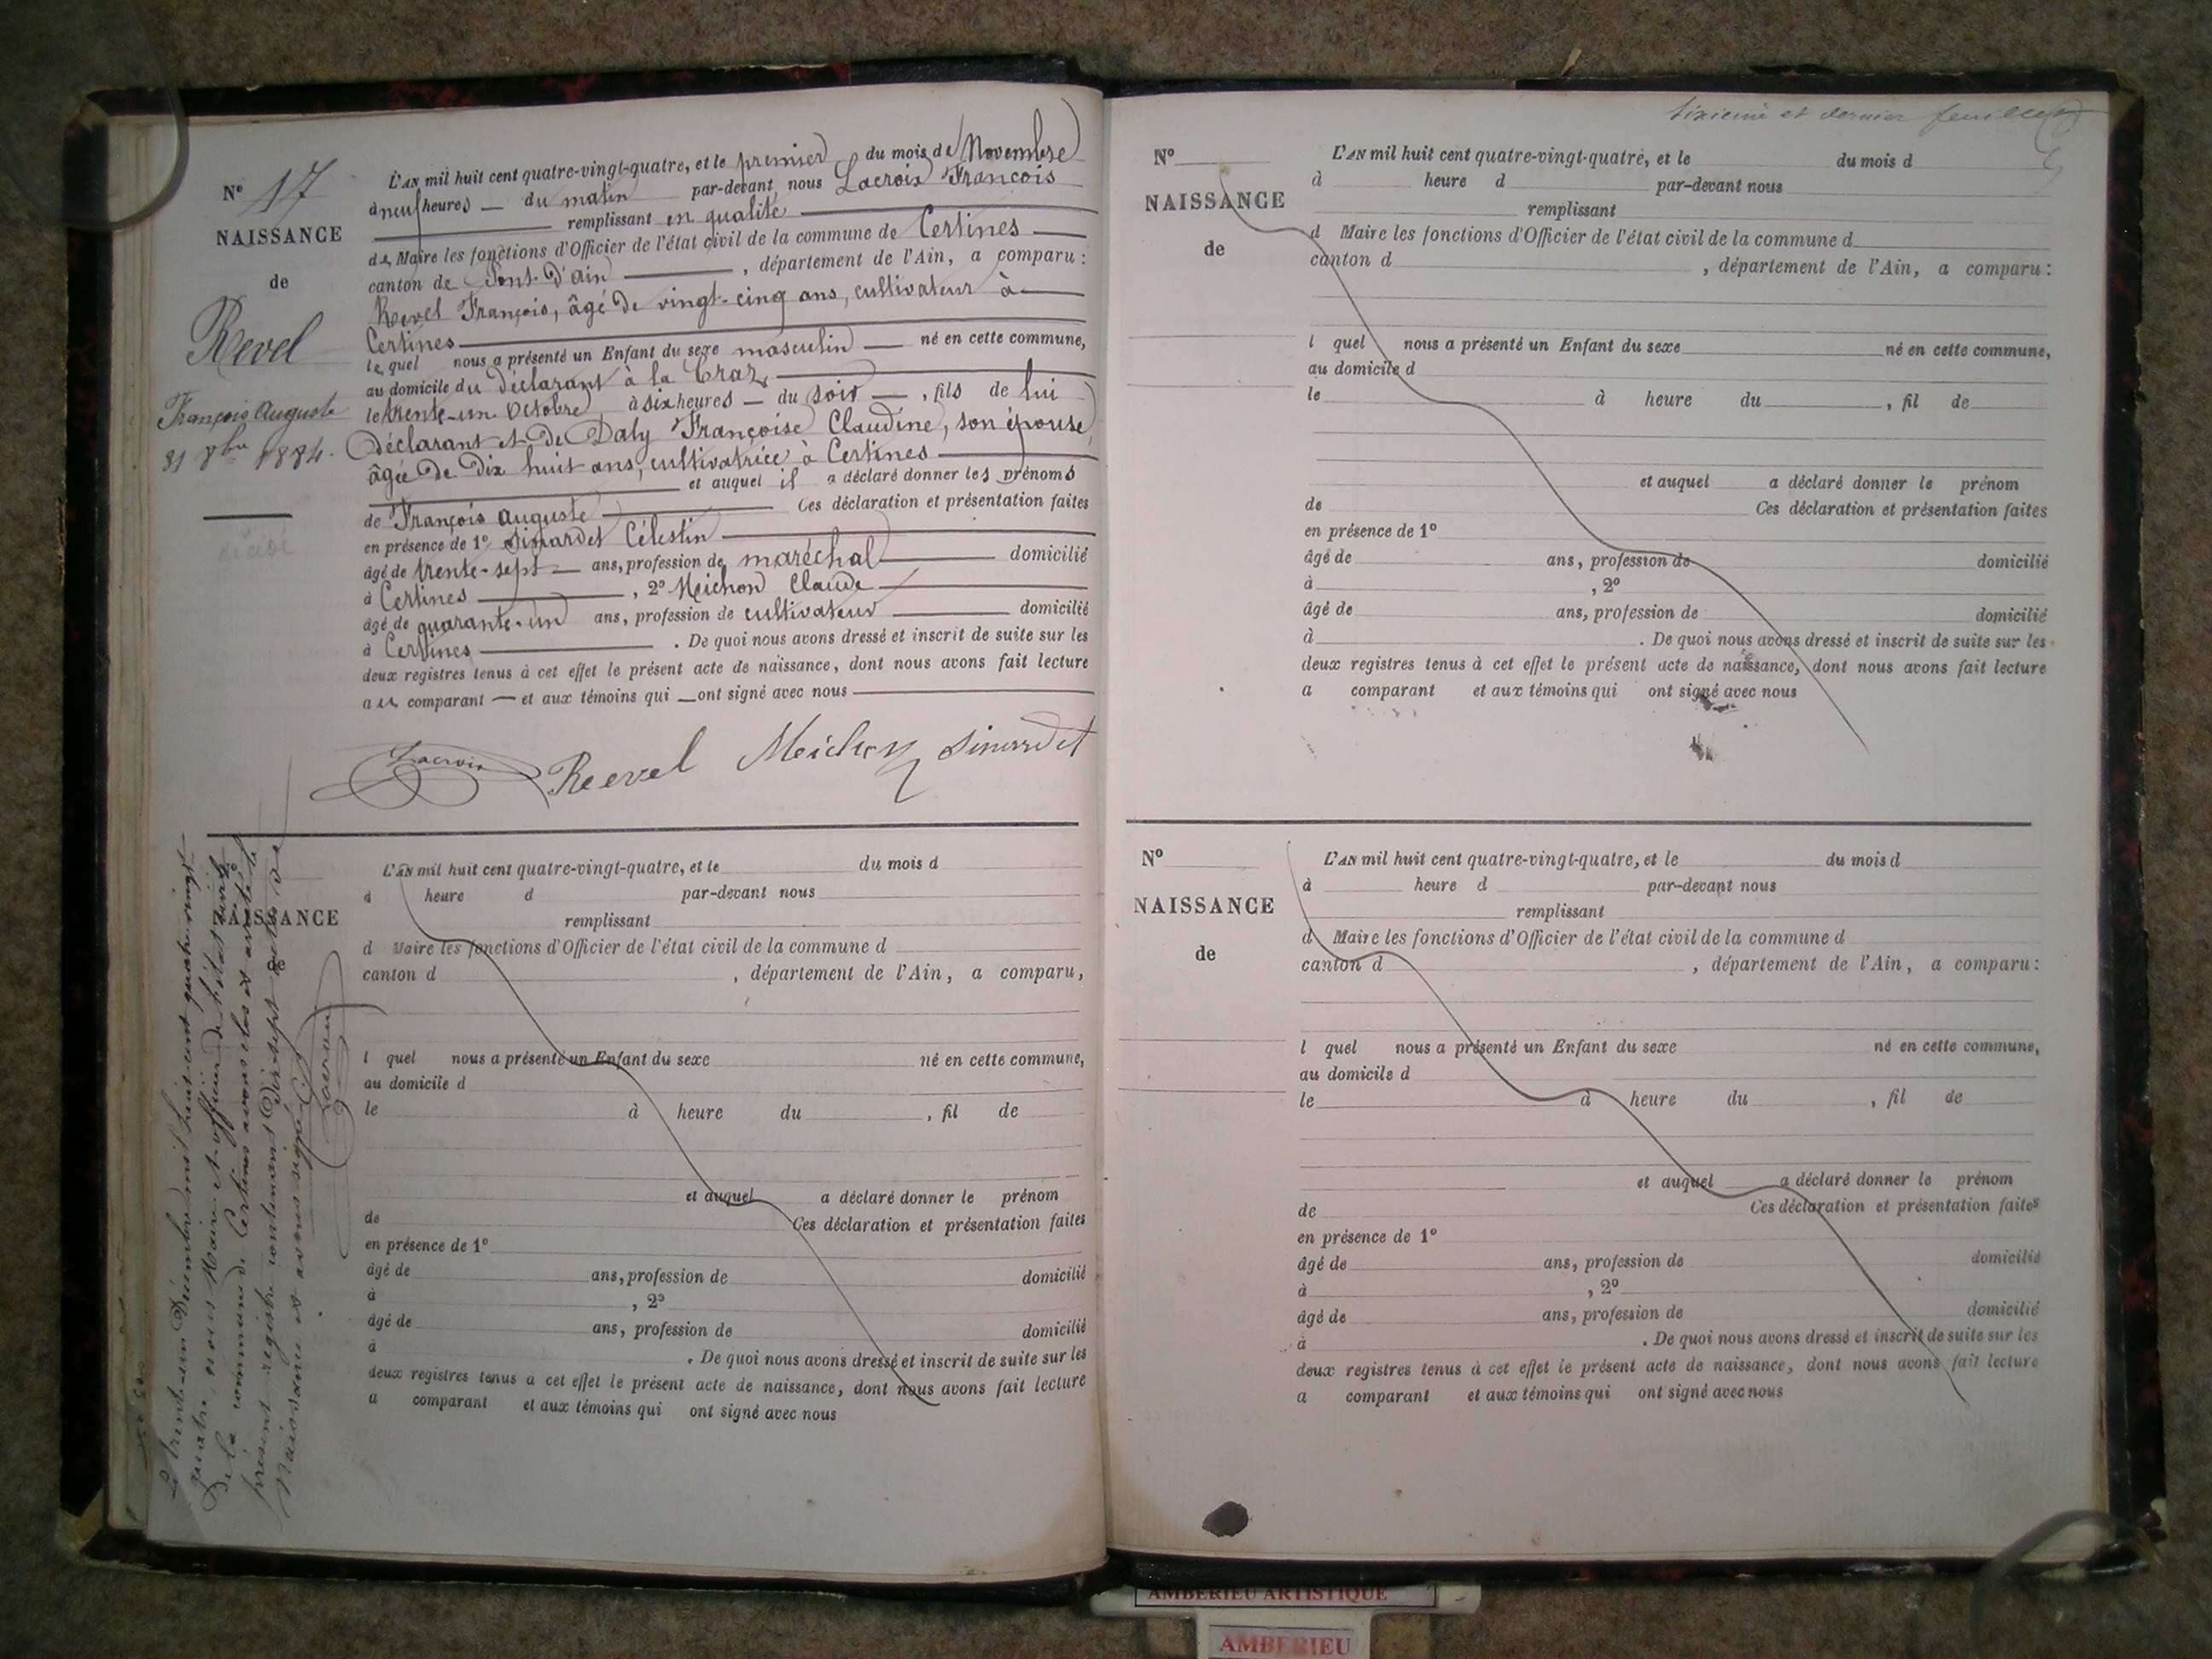 N° 17
NAISSANCE
de
Revel
François Auguste
31 8bre 1884.
décédé
L'AN mil huit cent quatre-vingt-quatre, et le premier du mois de Novembre
à neuf heures — du matin par-devant nous Lacroix François
remplissant en qualité
de Maire les fonctions d'Officier de l'état civil de la commune de Certines
canton de Pont-d'Ain , département de l'Ain, a comparu :
Revel François, âgé de vingt-cinq ans, cultivateur à
Certines
lequel nous a présenté un Enfant du sexe masculin — né en cette commune,
au domicile du déclarant à la Craz
le trente-un Octobre à six heures — du soir — , fils de lui
déclarant et de Daly Françoise Claudine, son épouse,
âgée de dix huit ans, cultivatrice à Certines
et auquel il a déclaré donner les prénoms
de François Auguste Ces déclaration et présentation faites
en présence de 1° Sinardet Célestin
âgé de trente-sept — ans, profession de maréchal domicilié
à Certines , 2° Meichon Claude
âgé de quarante-un ans, profession de cultivateur domicilié
à Certines . De quoi nous avons dressé et inscrit de suite sur les
deux registres tenus à cet effet le présent acte de naissance, dont nous avons fait lecture
au comparant — et aux témoins qui — ont signé avec nous
Lacroix Reevel Meichon Sinardet
NAISSANCE
de
L'AN mil huit cent quatre-vingt-quatre, et le du mois d
à heure d par-devant nous
remplissant
d Maire les fonctions d'Officier de l'état civil de la commune d
canton d , département de l'Ain, a comparu,
l quel nous a présenté un Enfant du sexe né en cette commune,
au domicile d
le à heure du , fil de
et auquel a déclaré donner le prénom
de Ces déclaration et présentation faites
en présence de 1°
âgé de ans, profession de domicilié
à , 2°
âgé de ans, profession de domicilié
à . De quoi nous avons dressé et inscrit de suite sur les
deux registres tenus à cet effet le présent acte de naissance, dont nous avons fait lecture
a comparant et aux témoins qui ont signé avec nous
Le trente-un Décembre mil huit cent quatre-vingt-
quatre, nous Maire et officier de l'état civil
de la commune de Certines avons clos et arrêté le
présent registre contenant Dix-sept actes de
Naissance et avons signé
Lacroix
sixième et dernier feuillet
N°
NAISSANCE
de
L'AN mil huit cent quatre-vingt-quatre, et le du mois d
à heure d par-devant nous
remplissant
d Maire les fonctions d'Officier de l'état civil de la commune d
canton d , département de l'Ain, a comparu :
l quel nous a présenté un Enfant du sexe né en cette commune,
au domicile d
le à heure du , fil de
et auquel a déclaré donner le prénom
de Ces déclaration et présentation faites
en présence de 1°
âgé de ans, profession de domicilié
à , 2°
âgé de ans, profession de domicilié
à . De quoi nous avons dressé et inscrit de suite sur les
deux registres tenus à cet effet le présent acte de naissance, dont nous avons fait lecture
a comparant et aux témoins qui ont signé avec nous
N°
NAISSANCE
de
L'AN mil huit cent quatre-vingt-quatre, et le du mois d
à heure d par-devant nous
remplissant
d Maire les fonctions d'Officier de l'état civil de la commune d
canton d , département de l'Ain, a comparu :
l quel nous a présenté un Enfant du sexe né en cette commune,
au domicile d
le à heure du , fil de
et auquel a déclaré donner le prénom
de Ces déclaration et présentation faites
en présence de 1°
âgé de ans, profession de domicilié
à , 2°
âgé de ans, profession de domicilié
à . De quoi nous avons dressé et inscrit de suite sur les
deux registres tenus à cet effet le présent acte de naissance, dont nous avons fait lecture
a comparant et aux témoins qui ont signé avec nous
AMBERIEU ARTISTIQUE
AMBERIEU